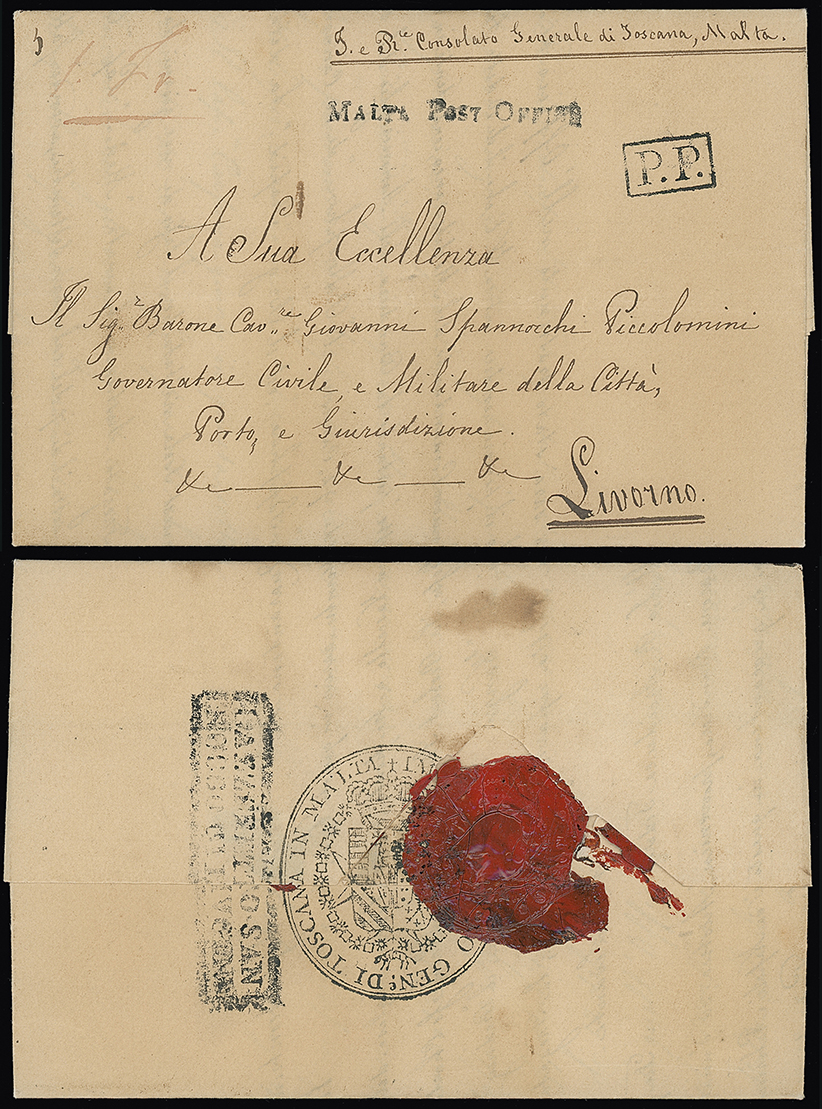 I. e Rle Consolato Generale di Toscana, Malta.
MALTA POST OFFICE
P.P.
A Sua Eccellenza
Il Sig.r Barone Cav..re Giovanni Spannocchi Piccolomini
Governatore Civile, e Militare della Città,
Porto, e Giurisdizione.
&c — &c — &c
Livorno.
GEN.E DI TOSCANA IN MALTA + IM